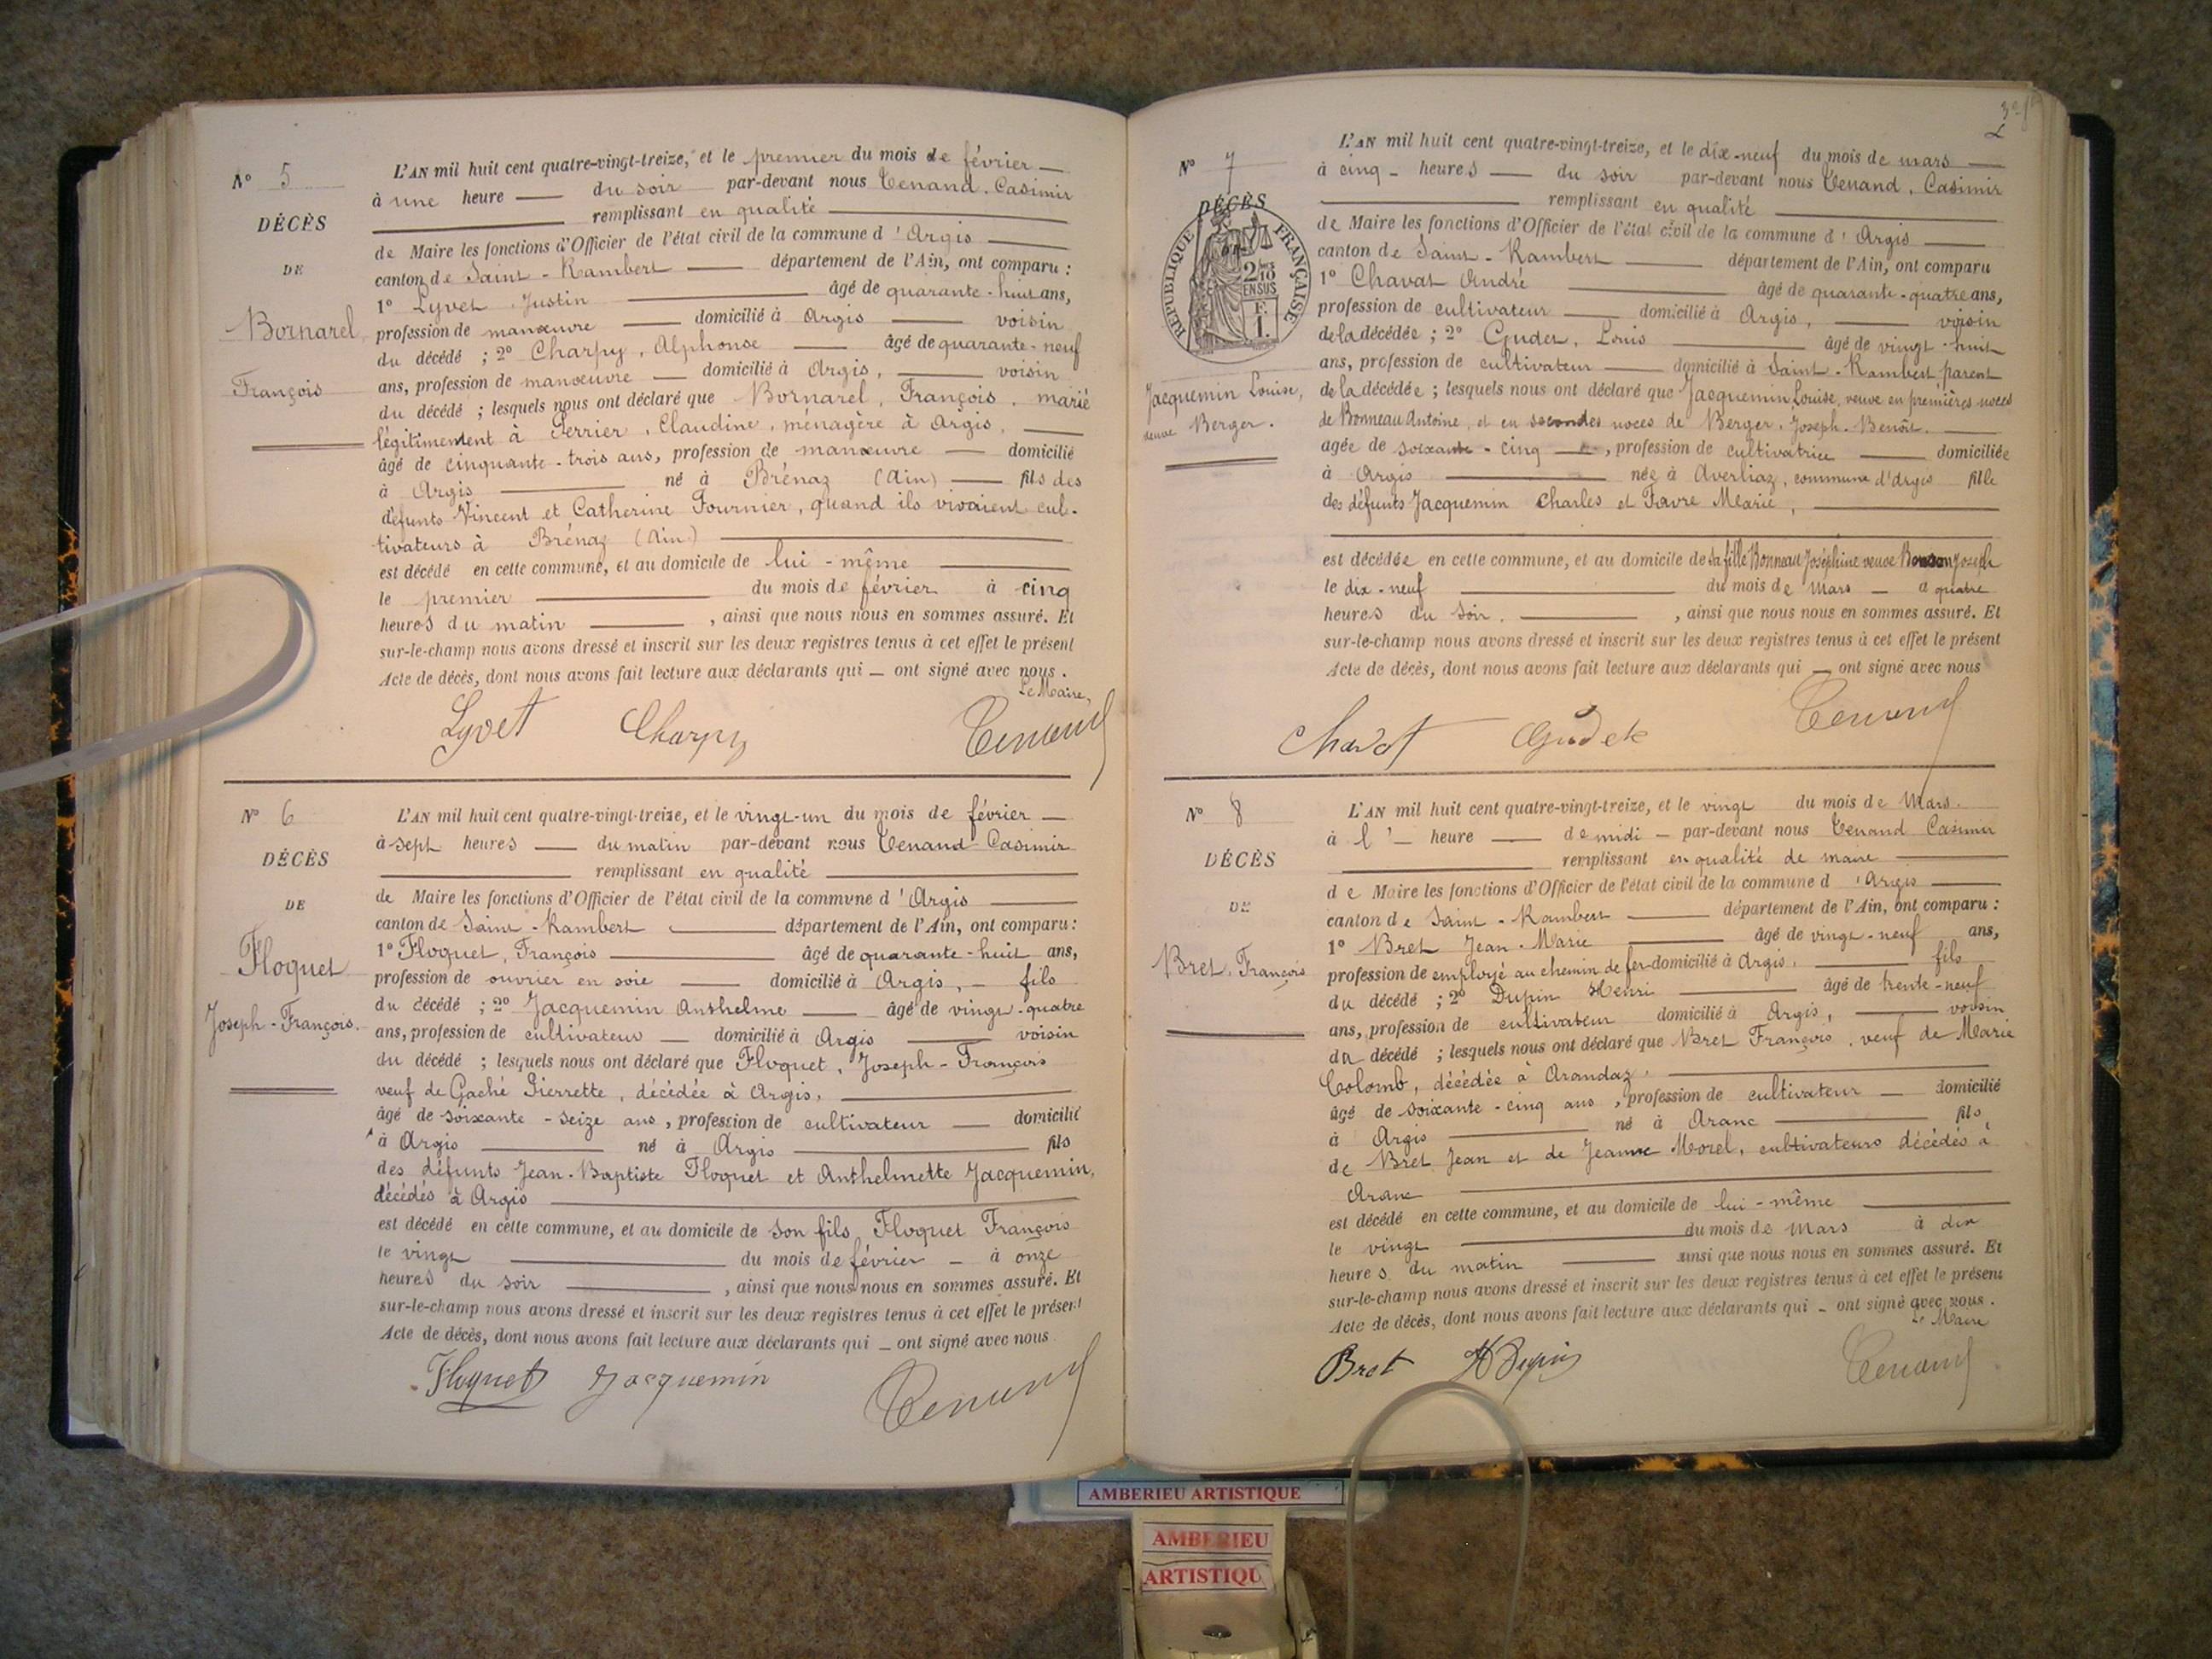 N° 5
DÉCÈS
DE
Bornarel
François
L'AN mil huit cent quatre-vingt-treize, et le premier du mois de février
à une heure du soir par-devant nous Tenand. Casimir
remplissant en qualité
de Maire les fonctions d'Officier de l'état civil de la commune d'Argis
canton de Saint-Rambert département de l'Ain, ont comparu :
1° Lyvet Justin âgé de quarante-huit ans,
profession de manœuvre domicilié à Argis voisin
du décédé ; 2° Charpy, Alphonse âgé de quarante-neuf
ans, profession de manœuvre domicilié à Argis, voisin
du décédé ; lesquels nous ont déclaré que Bornarel, François, marié
légitimement à Perrier, Claudine, ménagère à Argis,
âgé de cinquante-trois ans, profession de manœuvre domicilié
à Argis né à Brénaz (Ain) fils des
défunts Vincent et Catherine Fournier, quand ils vivaient cul-
tivateurs à Brénaz (Ain)
est décédé en cette commune, et au domicile de lui-même
le premier du mois de février à cinq
heures du matin, ainsi que nous nous en sommes assuré. Et
sur-le-champ nous avons dressé et inscrit sur les deux registres tenus à cet effet le présent
Acte de décès, dont nous avons fait lecture aux déclarants qui — ont signé avec nous.
Le Maire,
Lyvet Charpy Tenand
N° 6
DÉCÈS
DE
Floquet
Joseph-François.
L'AN mil huit cent quatre-vingt-treize, et le vingt-un du mois de février
à sept heures du matin par-devant nous Tenand Casimir
remplissant en qualité
de Maire les fonctions d'Officier de l'état civil de la commune d'Argis
canton de Saint-Rambert département de l'Ain, ont comparu :
1° Floquet, François âgé de quarante-huit ans,
profession de ouvrier en soie domicilié à Argis, fils
du décédé ; 2° Jacquemin Anthelme âgé de vingt-quatre
ans, profession de cultivateur domicilié à Argis voisin
du décédé ; lesquels nous ont déclaré que Floquet, Joseph-François
veuf de Gaché Pierrette, décédée à Argis,
âgé de soixante-seize ans, profession de cultivateur domicilié
à Argis né à Argis fils
des défunts Jean-Baptiste Floquet et Anthelmette Jacquemin,
décédés à Argis
est décédé en cette commune, et au domicile de son fils, Floquet François
le vingt du mois de février à onze
heures du soir, ainsi que nous nous en sommes assuré. Et
sur-le-champ nous avons dressé et inscrit sur les deux registres tenus à cet effet le présent
Acte de décès, dont nous avons fait lecture aux déclarants qui — ont signé avec nous
Floquet Jacquemin Tenand
N° 7
DÉCÈS
RÉPUBLIQUE FRANÇAISE
2/10
EN SUS
F.
1.
Jacquemin Louise,
veuve Berger.
L'AN mil huit cent quatre-vingt-treize, et le dix-neuf du mois de mars
à cinq heures du soir par-devant nous Tenand, Casimir
remplissant en qualité
de Maire les fonctions d'Officier de l'état civil de la commune d'Argis
canton de Saint-Rambert département de l'Ain, ont comparu
1° Chavat André âgé de quarante-quatre ans,
profession de cultivateur domicilié à Argis, voisin
de la décédée ; 2° Gudet, Louis âgé de vingt-huit
ans, profession de cultivateur domicilié à Saint-Rambert, parent
de la décédée ; lesquels nous ont déclaré que Jacquemin Louise, veuve en premières noces
de Bonneau Antoine, et en secondes noces de Berger, Joseph-Benoît.
agée de soixante-cinq, profession de cultivatrice domiciliée
à Argis née à Averliaz, commune d'Argis fille
des défunts Jacquemin Charles et Favre Marie,
est décédée en cette commune, et au domicile de sa fille Bonneau Joséphine veuve Joseph
le dix-neuf du mois de Mars à quatre
heures du soir., ainsi que nous nous en sommes assuré. Et
sur-le-champ nous avons dressé et inscrit sur les deux registres tenus à cet effet le présent
Acte de décès, dont nous avons fait lecture aux déclarants qui — ont signé avec nous
Chavat Gudet Tenand
N° 8
DÉCÈS
DE
Bret, François
L'AN mil huit cent quatre-vingt-treize, et le vingt du mois de Mars.
à l'heure de midi par-devant nous Tenand Casimir
remplissant en qualité de maire
de Maire les fonctions d'Officier de l'état civil de la commune d'Argis
canton de Saint-Rambert département de l'Ain, ont comparu :
1° Bret Jean-Marie âgé de vingt-neuf ans,
profession de employé au chemin de fer domicilié à Argis, fils
du décédé ; 2° Dupin Henri âgé de trente-neuf
ans, profession de cultivateur domicilié à Argis, voisin
du décédé ; lesquels nous ont déclaré que Bret François, veuf de Marie
Colomb, décédée à Arandaz,
âgé de soixante-cinq ans, profession de cultivateur domicilié
à Argis né à Aranc fils
de Bret Jean et de Jeanne Morel, cultivateurs décédés à
Aranc
est décédé en cette commune, et au domicile de lui-même
le vingt du mois de Mars à dix
heures du matin ainsi que nous nous en sommes assuré. Et
sur-le-champ nous avons dressé et inscrit sur les deux registres tenus à cet effet le présent
Acte de décès, dont nous avons fait lecture aux déclarants qui — ont signé avec nous.
Le Maire
Bret H Dupin Tenand
AMBERIEU ARTISTIQUE
AMBERIEU
ARTISTIQU